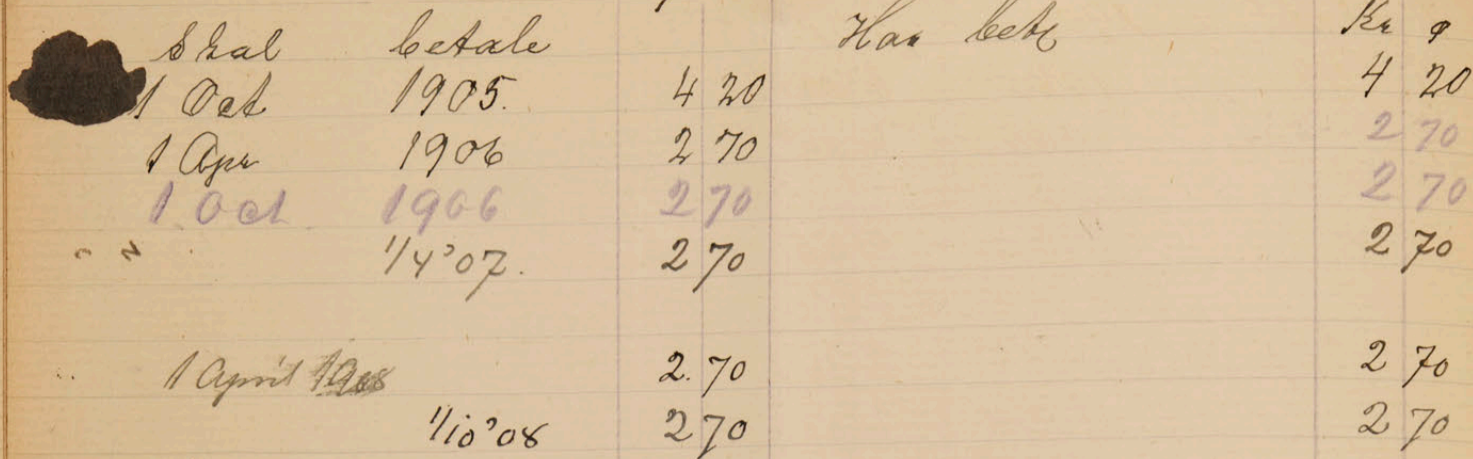 Skal betale Har bet Kr ø
1 Oct 1905. 4 20 4 20
1 Apr 1906 2 70 2 70
1 Oct 1906 2 70 2 70
1/4 '07. 2 70 2 70
1 April 1908 2.70 2 70
1/10 '08 2 70 2 70